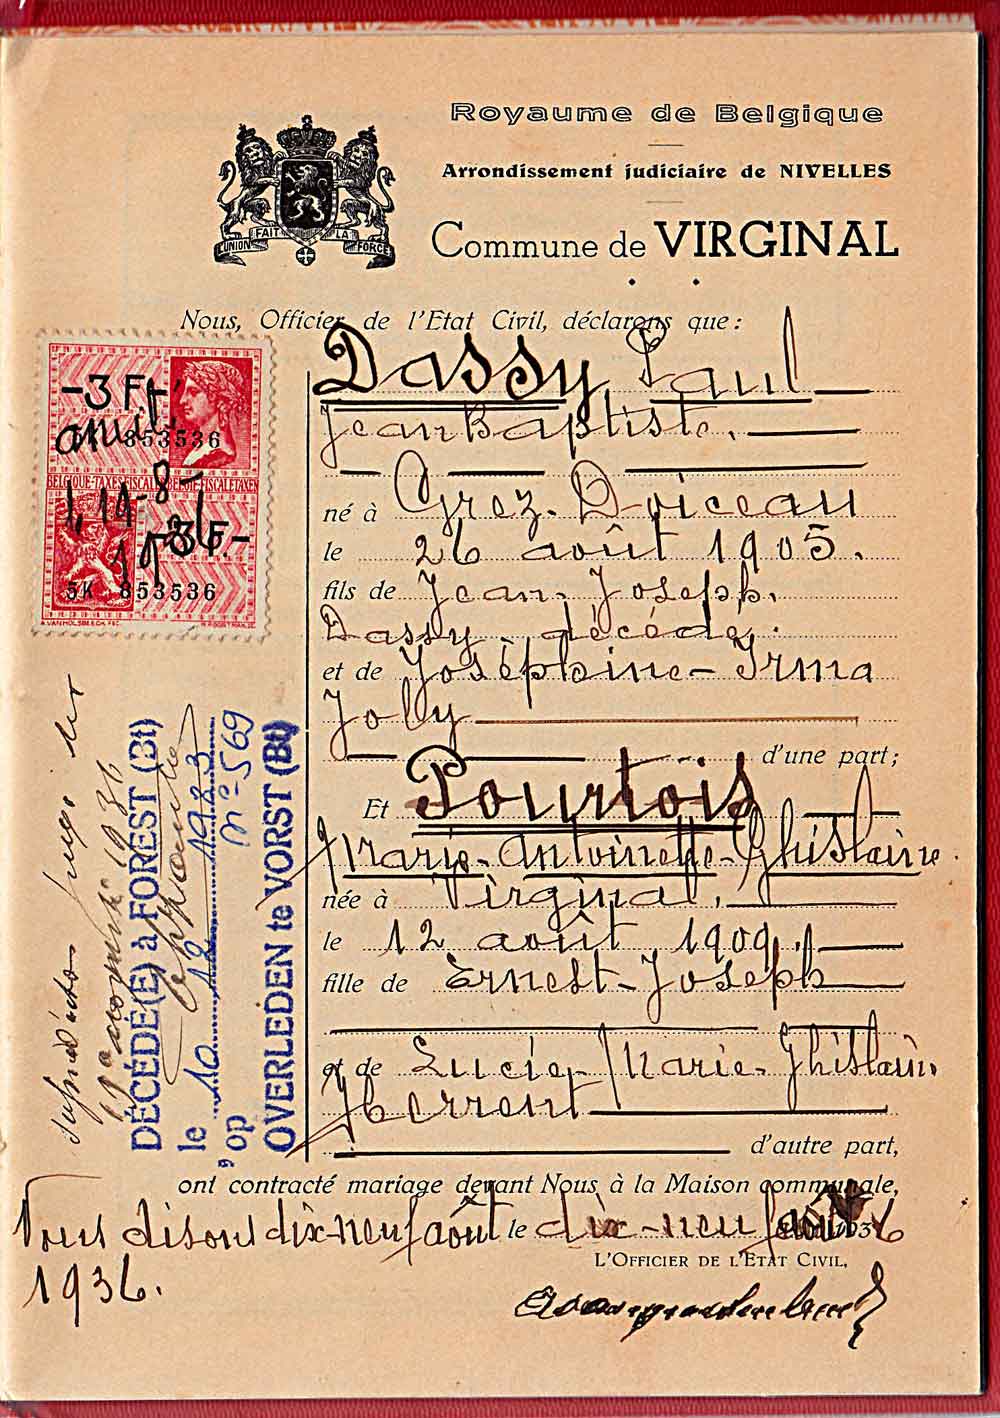 Royaume de Belgique
Arrondissement judiciaire de NIVELLES
Commune de VIRGINAL
UNION FAIT LA FORCE
Nous, Officier de l'Etat Civil, déclarons que :
Dassy Paul
Jean Baptiste.
né à Grez-Doiceau
le 26 août 1905.
fils de Jean-Joseph
Dassy, décédé.
et de Joséphine-Irma
Joly
d'une part ;
Et Pourtois
Marie-Antoinette-Ghislaine.
née à Virginal.
le 12 août 1909.
fille de Ernest-Joseph
et de Lucie-Marie-Ghislain.
Herrent
d'autre part,
ont contracté mariage devant Nous, à la Maison communale,
Nous disons dix-neuf août le dix-neuf août 1936
1936.
L'OFFICIER DE L'ETAT CIVIL,
-3 Fr.
5K 853536
BELGIQUE-TAXES FISCALES BELGIË-FISCALE TAXEN
14-8-
3 F.-
5K 853536
1936
DÉCÉDÉ(E) à FOREST (Bt)
L'épouse
le 10 12 1983
op n° 569
OVERLEDEN te VORST (Bt)